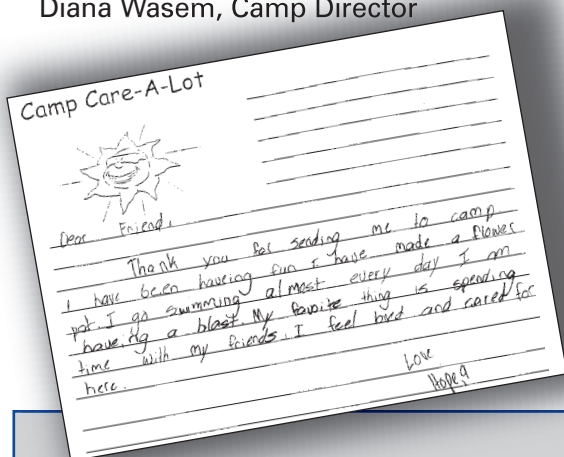 Diana Wasem, Camp Director
Camp Care-A-Lot
Dear Friend,
Thank you for sending me to camp
I have been haveing fun I have made a flower
pot. I go swimming almost every day I am
haveing a blast. My favorite thing is spending
time with my friends. I feel loved and cared for
here.
Love
Hope,9